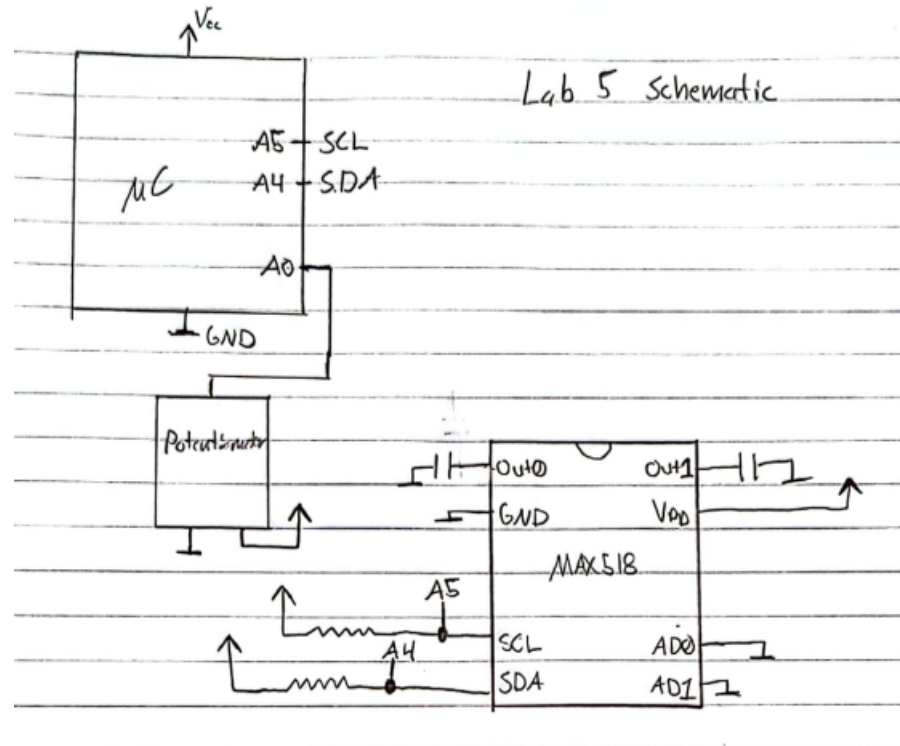 Vcc
Lab 5 Schematic
A5 SCL
A4 SDA
μC
A0
GND
Potentiometer
Out0 Out1
GND VDD
MAX518
A5
SCL AD0
A4
SDA AD1